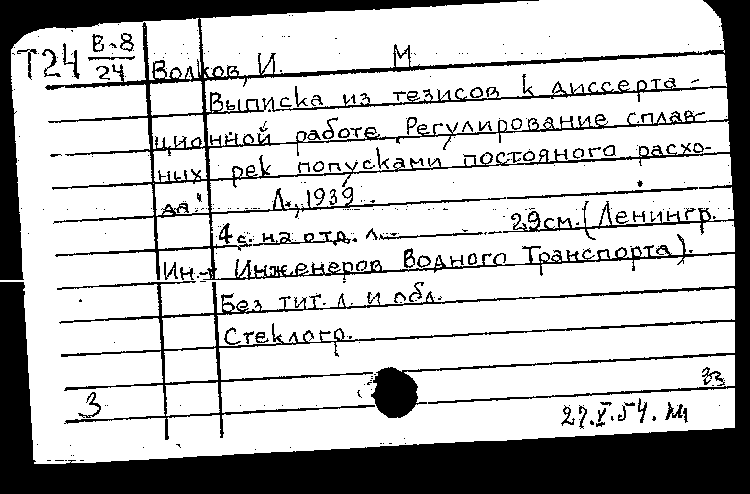 Т24 В-8/24
Волков, И. М
Выписка из тезисов к диссерта-
ционной работе „Регулирование сплав-
ных рек попусками постояного расхо-
да". Л., 1939.
4 с. на отд. л. 29 см. (Ленингр.
Ин-т Инженеров Водного Транспорта).
Без тит. л. и обл.
Стеклогр.
3
27.V.54.